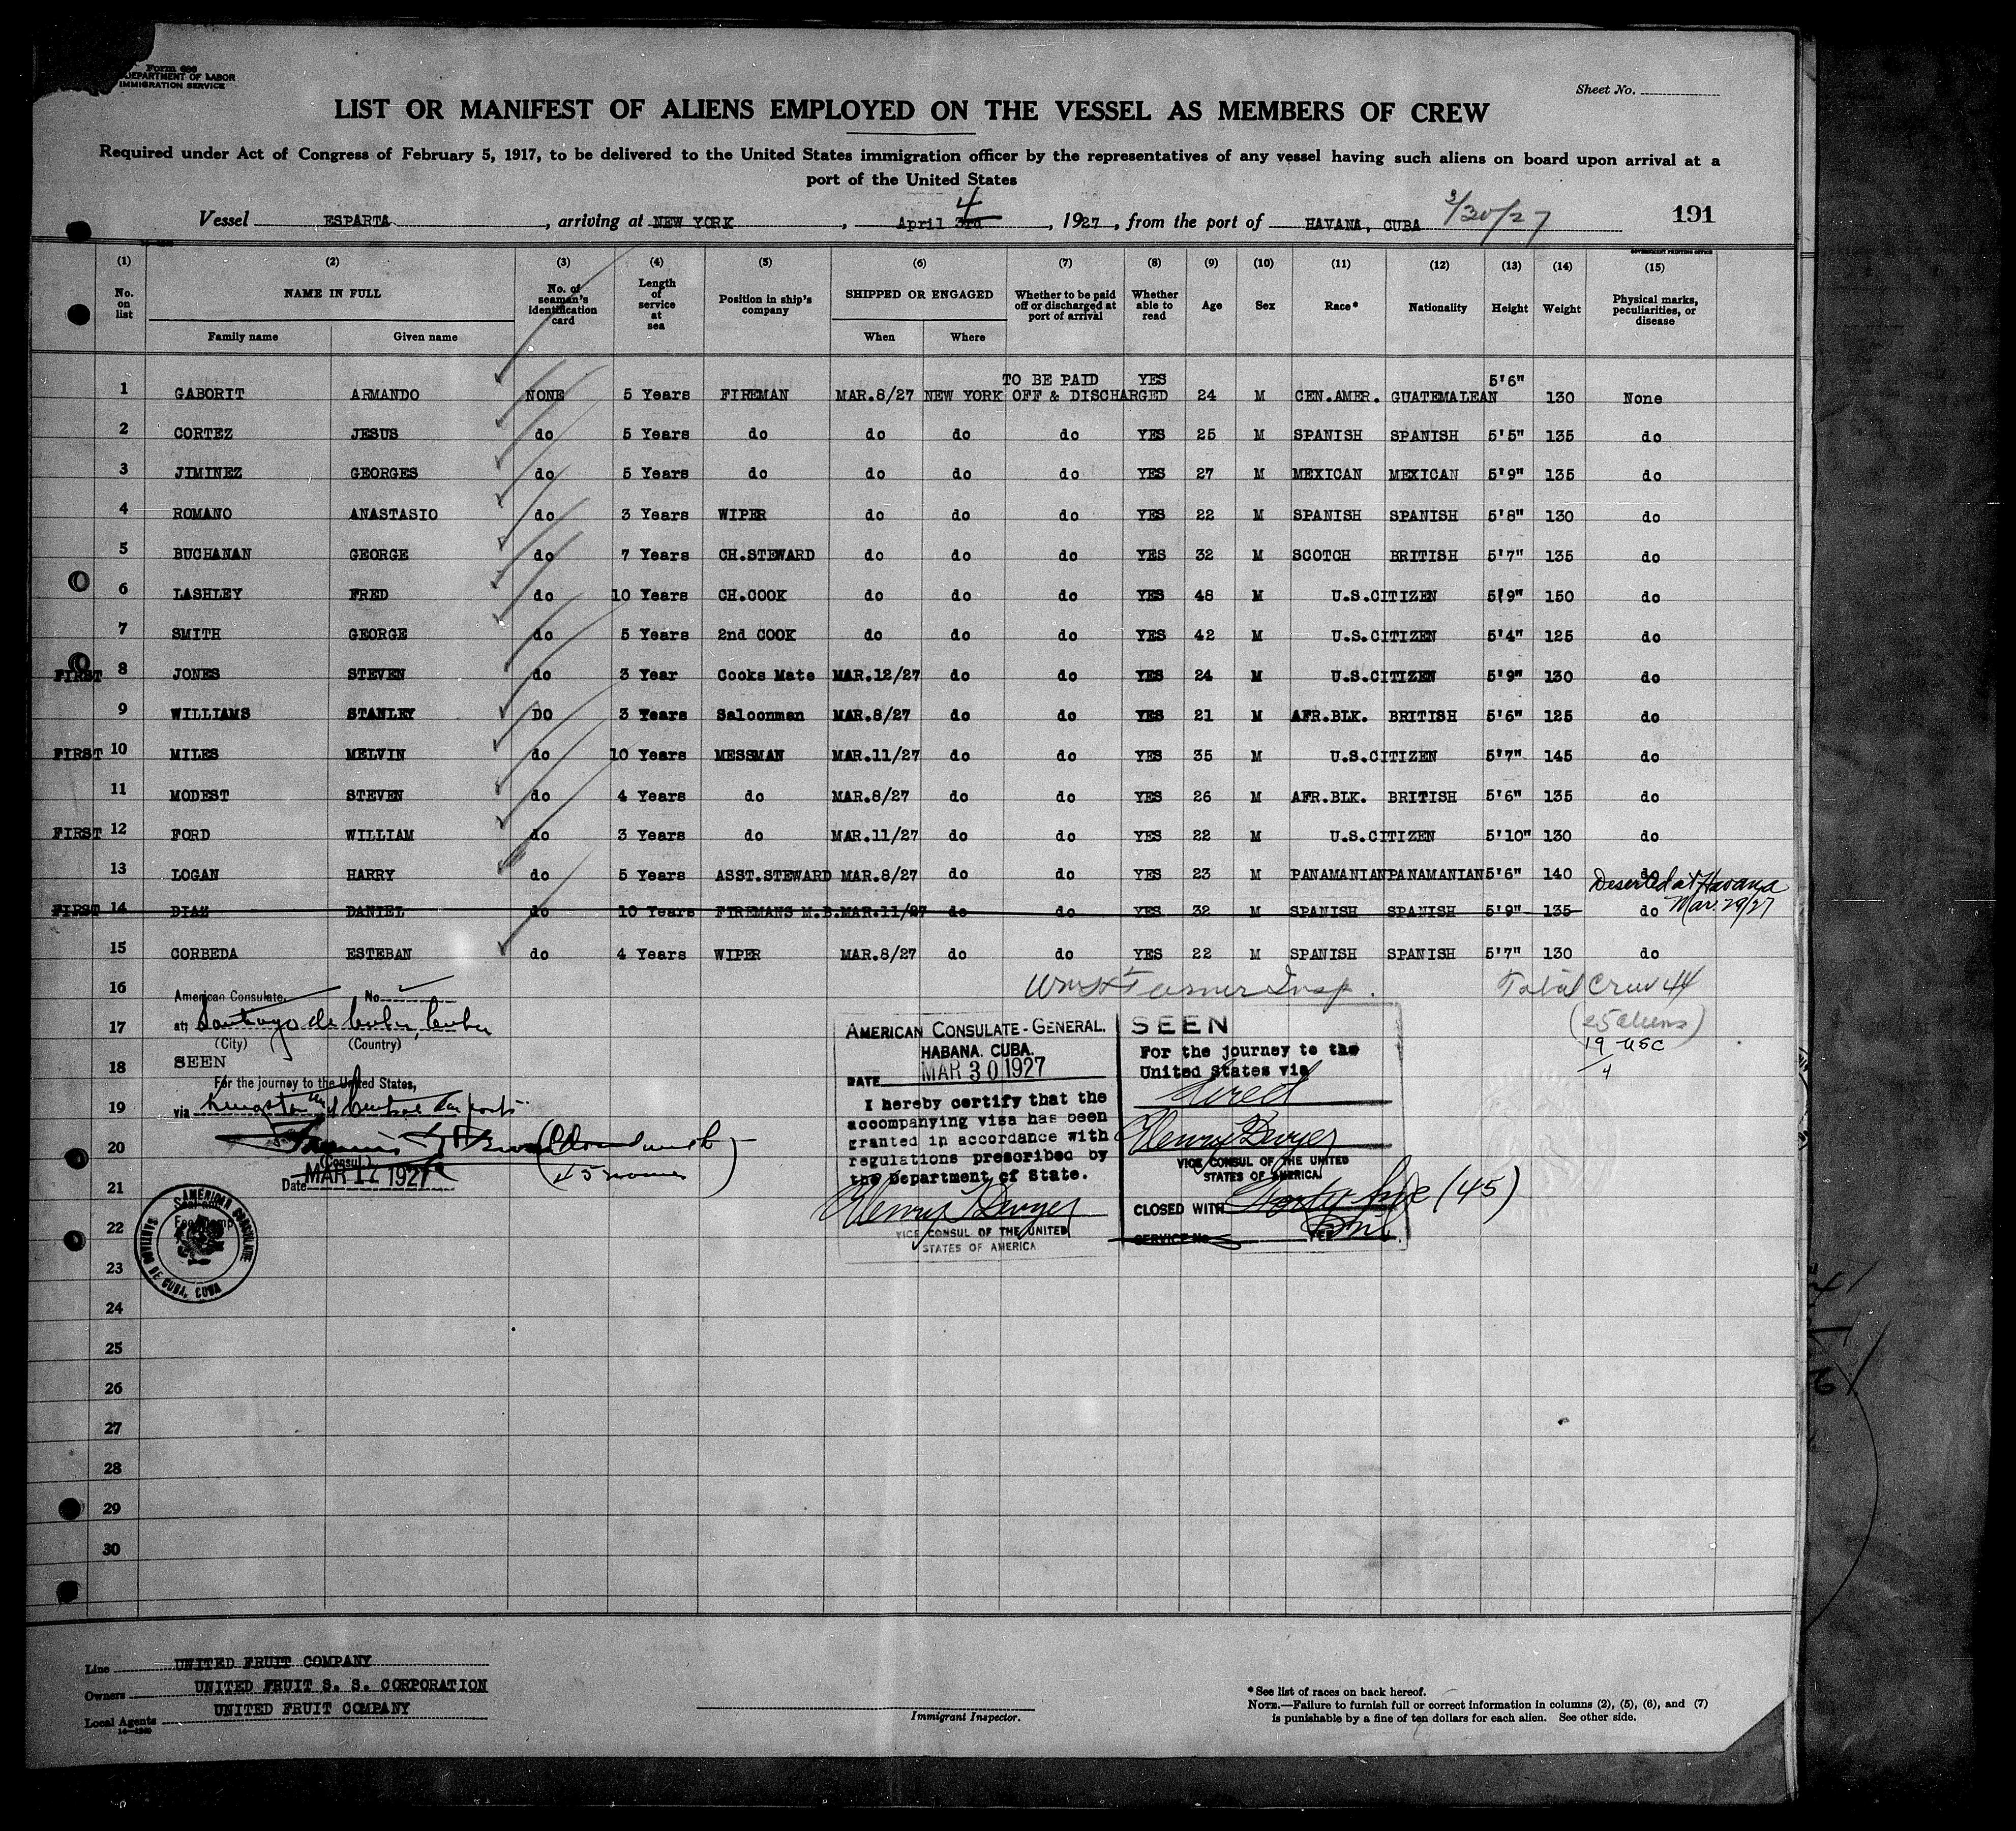 Form 680
DEPARTMENT OF LABOR
IMMIGRATION SERVICE
Sheet No.
LIST OR MANIFEST OF ALIENS EMPLOYED ON THE VESSEL AS MEMBERS OF CREW
Required under Act of Congress of February 5, 1917, to be delivered to the United States immigration officer by the representatives of any vessel having such aliens on board upon arrival at a
port of the United States
Vessel ESPARTA, arriving at NEW YORK, April 3rd 4, 1927, from the port of HAVANA, CUBA 3/30/27 191
GOVERNMENT PRINTING OFFICE
(1) (2) (3) (4) (5) (6) (7) (8) (9) (10) (11) (12) (13) (14) (15)
No. on list NAME IN FULL Family name Given name No. of seaman's identification card Length of service at sea Position in ship's company SHIPPED OR ENGAGED When Where Whether to be paid off or discharged at port of arrival Whether able to read Age Sex Race* Nationality Height Weight Physical marks, peculiarities, or disease
1 GABORIT ARMANDO NONE 5 Years FIREMAN MAR.8/27 NEW YORK TO BE PAID OFF & DISCHARGED YES 24 M CEN.AMER. GUATEMALEAN 5'6" 130 None
2 CORTEZ JESUS do 5 Years do do do do YES 25 M SPANISH SPANISH 5'5" 135 do
3 JIMINEZ GEORGES do 5 Years do do do do YES 27 M MEXICAN MEXICAN 5'9" 135 do
4 ROMANO ANASTASIO do 3 Years WIPER do do do YES 22 M SPANISH SPANISH 5'8" 130 do
5 BUCHANAN GEORGE do 7 Years CH.STEWARD do do do YES 32 M SCOTCH BRITISH 5'7" 135 do
6 LASHLEY FRED do 10 Years CH.COOK do do do YES 48 M U.S.CITIZEN 5'9" 150 do
7 SMITH GEORGE do 5 Years 2nd COOK do do do YES 42 M U.S.CITIZEN 5'4" 125 do
FIRST 8 JONES STEVEN do 3 Year Cooks Mate MAR.12/27 do do YES 24 M U.S.CITIZEN 5'9" 130 do
9 WILLIAMS STANLEY DO 3 Years Saloonman MAR.8/27 do do YES 21 M AFR.BLK. BRITISH 5'6" 125 do
FIRST 10 MILES MELVIN do 10 Years MESSMAN MAR.11/27 do do YES 35 M U.S.CITIZEN 5'7" 145 do
11 MODEST STEVEN do 4 Years do MAR.8/27 do do YES 26 M AFR.BLK. BRITISH 5'6" 135 do
FIRST 12 FORD WILLIAM do 3 Years do MAR.11/27 do do YES 22 M U.S.CITIZEN 5'10" 130 do
13 LOGAN HARRY do 5 Years ASST.STEWARD MAR.8/27 do do YES 23 M PANAMANIAN PANAMANIAN 5'6" 140 do
Deserted at Havana
FIRST 14 DIAZ DANIEL do 10 Years FIREMANS M.B. MAR.11/27 do do YES 32 M SPANISH SPANISH 5'9" 135 do Mar. 29/27
15 CORBEDA ESTEBAN do 4 Years WIPER MAR.8/27 do do YES 22 M SPANISH SPANISH 5'7" 130 do
16
17
18
19
20
21
22
23
24
25
26
27
28
29
30
Wm H Turner Insp.
Total Crew 44
(25 aliens)
19 USC
American Consulate, No.
at Santiago de Cuba, Cuba
(City) (Country)
SEEN
For the journey to the United States,
via Kingston
(Consul)
Date MAR 17 1927
45 names
AMERICAN CONSULATE
SANTIAGO DE CUBA, CUBA
AMERICAN CONSULATE-GENERAL.
HABANA. CUBA.
DATE MAR 30 1927
I hereby certify that the
accompanying visa has been
granted in accordance with
regulations prescribed by
the Department of State.
Henry T Dwyer
VICE CONSUL OF THE UNITED
STATES OF AMERICA
SEEN
For the journey to the
United States via
direct
Henry T Dwyer
VICE CONSUL OF THE UNITED
STATES OF AMERICA
CLOSED WITH Forty five (45)
SERVICE No. FEE
Line UNITED FRUIT COMPANY
Owners UNITED FRUIT S. S. CORPORATION
Local Agents UNITED FRUIT COMPANY
Immigrant Inspector.
*See list of races on back hereof.
NOTE.—Failure to furnish full or correct information in columns (2), (5), (6), and (7)
is punishable by a fine of ten dollars for each alien. See other side.